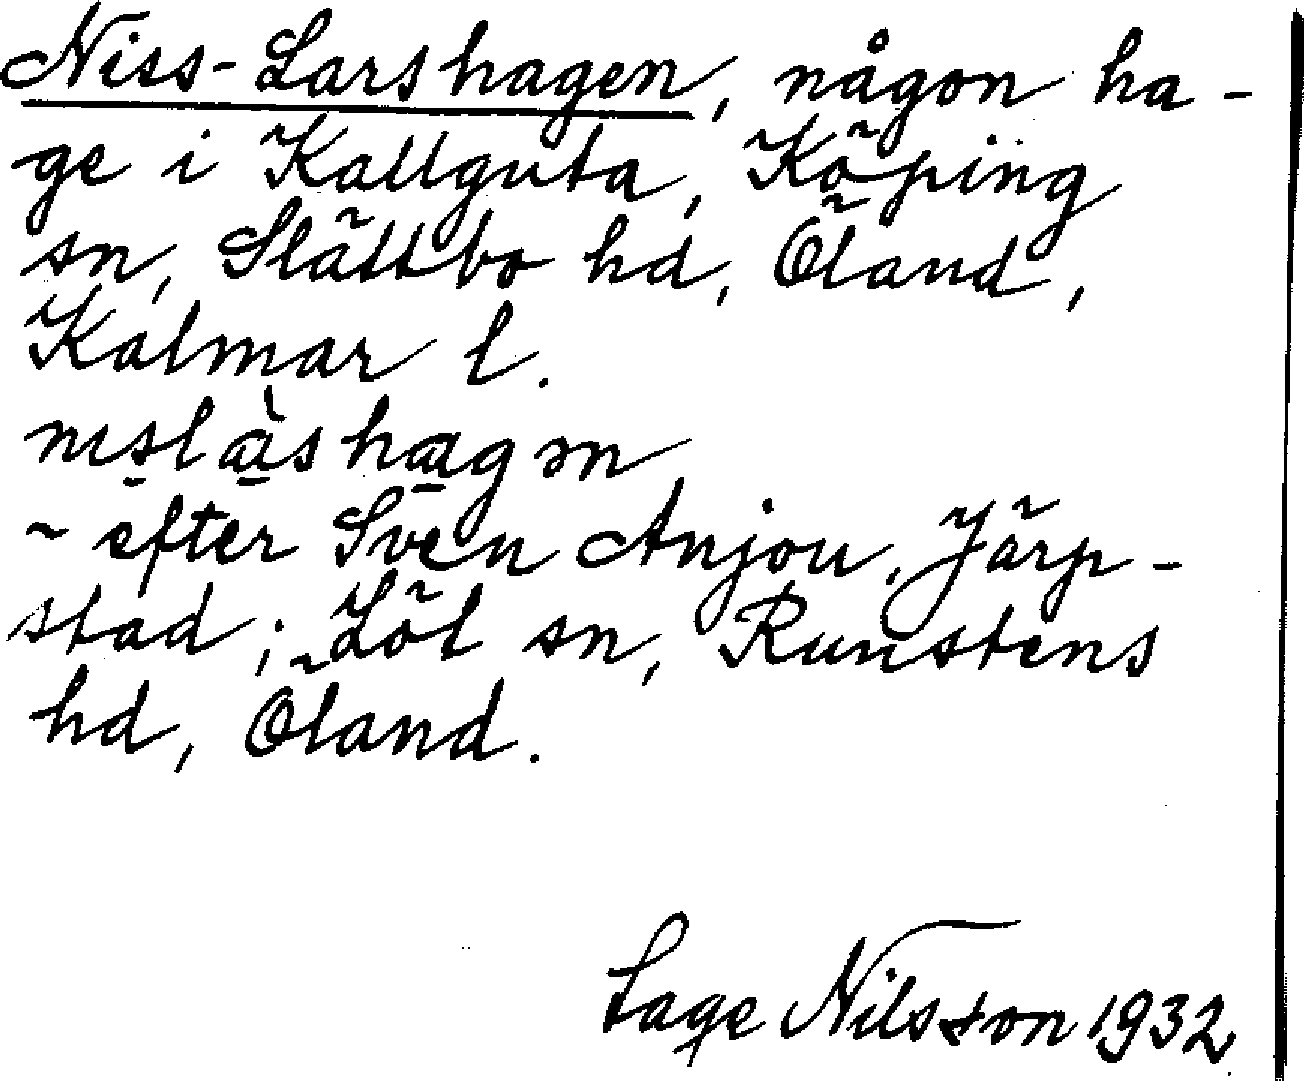 Niss-Larshagen, någon ha-
ge i Kallguta, Köping
sn, Slättbo hd, Öland,
Kalmar l.
nıslàshagən
~ efter Sven Anjou, Järp-
stad; Löt sn, Runstens
hd, Öland.
Lage Nilsson 1932